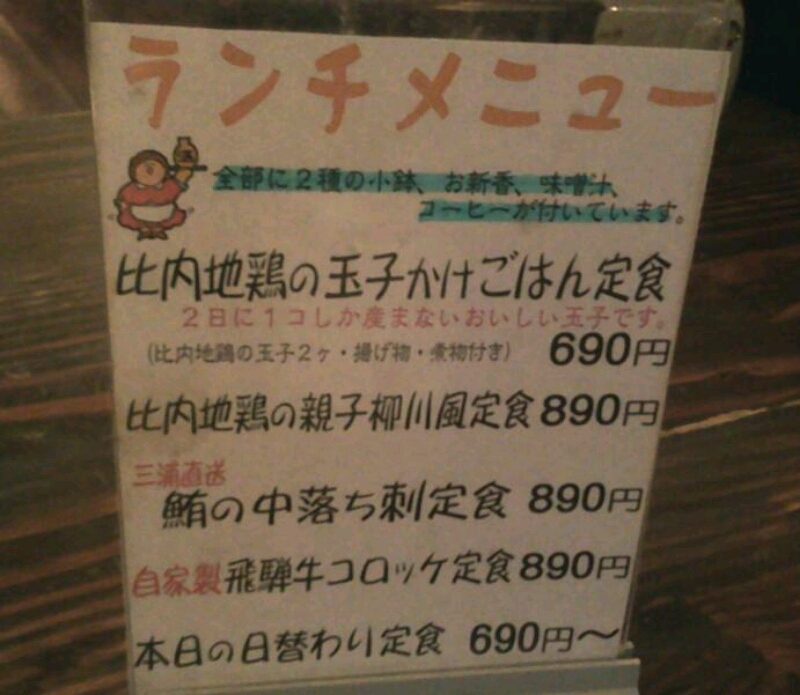 ランチメニュー
全部に2種の小鉢、お新香、味噌汁、
コーヒーが付いています。
比内地鶏の玉子かけごはん定食
2日に1コしか産まないおいしい玉子です。
(比内地鶏の玉子2ヶ・揚げ物・煮物付き) 690円
比内地鶏の親子柳川風定食 890円
三浦直送
鮪の中落ち刺定食 890円
自家製飛騨牛コロッケ定食 890円
本日の日替わり定食 690円〜